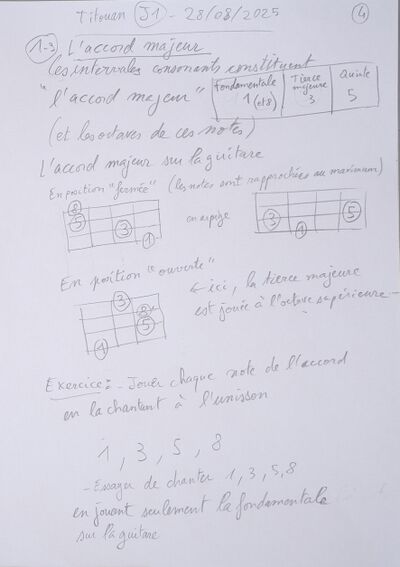 Titouan J1 - 28/08/2025 4
1-3 L'accord majeur
Les intervalles consonants constituent
"l'accord majeur" Fondamentale 1 (et 8) Tierce majeure 3 Quinte 5
(et les octaves de ces notes)
L'accord majeur sur la guitare
En position "fermée" (les notes sont rapprochées au maximum)
8 5 3 1 en arpège 3 1 5
En position "ouverte"
3 8 5 1 ← ici, la tierce majeure
est jouée à l'octave supérieure
Exercice : - Jouer chaque note de l'accord
en la chantant à l'unisson
1, 3, 5, 8
- Essayer de chanter 1, 3, 5, 8
en jouant seulement la fondamentale
sur la guitare